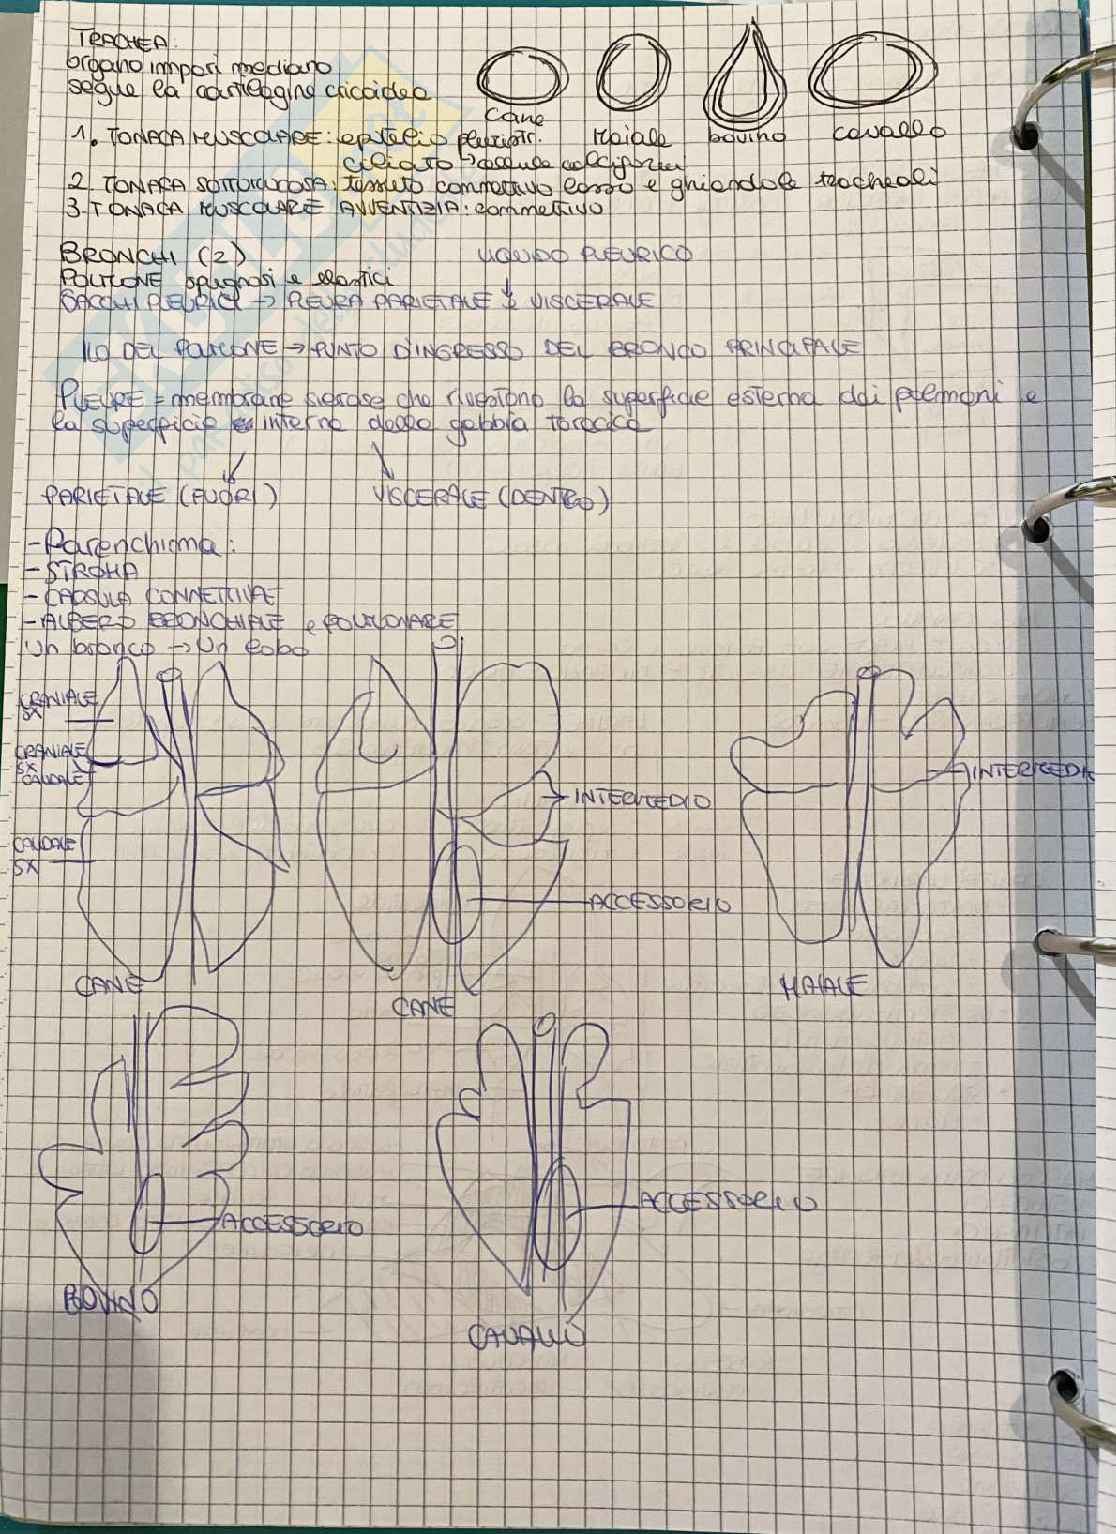 TRACHEA:
organo impari mediano
segue la cartilagine cricoidea
Cane
Maiale
bovino
cavallo
1. TONACA MUSCOLARE: epitelio pluristr.
ciliato → cellule calciformi
2. TONACA SOTTOMUCOSA: tessuto connettivo lasso e ghiandole tracheali
3. TONACA MUSCOLARE AVVENTIZIA: connettivo
BRONCHI (2)
LIQUIDO PLEURICO
POLMONE spugnosi e elastici
SACCHI PLEURICI → PLEURA PARIETALE e VISCERALE
ILO DEL POLMONE → PUNTO D'INGRESSO DEL BRONCO PRINCIPALE
PLEURE = membrane sierose che rivestono la superficie esterna dei polmoni e
la superficie interna della gabbia toracica
PARIETALE (FUORI)
VISCERALE (DENTRO)
- Parenchima:
- STROMA
- CAPSULA CONNETTIVALE
- ALBERO BRONCHIALE e POLMONARE
Un bronco → Un lobo
CRANIALE
SX
CRANIALE
SX
CAUDALE
CAUDALE
SX
INTERMEDIO
INTERMEDIO
ACCESSORIO
CANE
CANE
MAIALE
ACCESSORIO
ACCESSORIO
BOVINO
CAVALLO